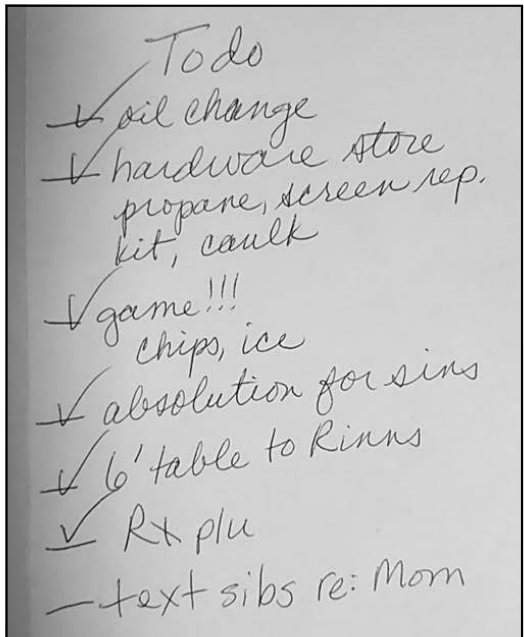 To do
✓ oil change
✓ hardware store
propane, screen rep.
kit, caulk
✓ game!!!
chips, ice
✓ absolution for sins
✓ 6' table to Rinns
✓ Rx plu
— text sibs re: Mom